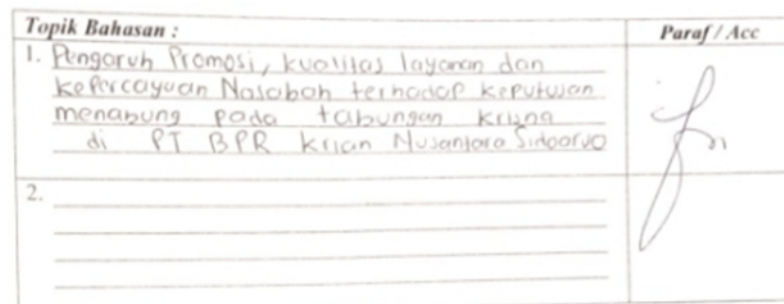 Topik Bahasan :
Paraf / Acc
1. Pengaruh Promosi, kualitas layanan dan
kepercayaan Nasabah terhadap keputusan
menabung pada tabungan krisna
di PT BPR Krian Nusantara Sidoarjo
2.